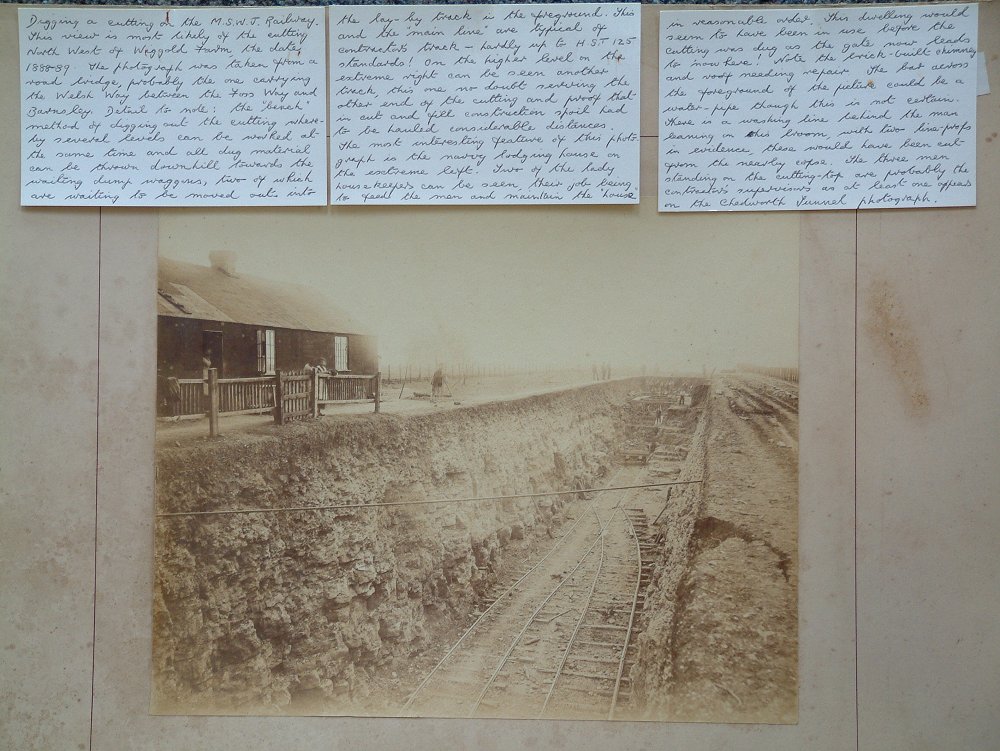 Digging a cutting on the M.S.W.J. Railway.
This view is most likely of the cutting
North West of Waggold Farm the date,
1888-89. The photograph was taken from a
road bridge, probably the one carrying
the Welsh Way between the Foss Way and
Barnsley. Detail to note: the 'bench'
method of digging out the cutting where-
by several levels can be worked at
the same time and all dug material
can be thrown downhill towards the
waiting dump waggons, two of which
are waiting to be moved out into
the lay-by track in the foreground. This
and the 'main line' are typical of
contractors track - hardly up to H S T 125
standards! On the higher level on the
extreme right can be seen another
track, this one no doubt serving the
other end of the cutting and proof that
in cut and fill construction spoil had
to be hauled considerable distances.
The most interesting feature of this photo-
graph is the navvy lodging house on
the extreme left! Two of the lady
housekeepers can be seen, their job being
to feed the men and maintain the 'house'
in reasonable order. This dwelling would
seem to have been in use before the
cutting was dug as the gate now leads
to nowhere! Note the brick-built chimney
and roof needing repair. The bar across
the foreground of the picture could be a
water-pipe though this is not certain.
There is a washing line behind the man
leaning on his broom with two line-props
in evidence, these would have been cut
from the nearby copse. The three men
standing on the cutting-top are probably the
contractor's supervisors as at least one appears
on the Chedworth Tunnel photograph.